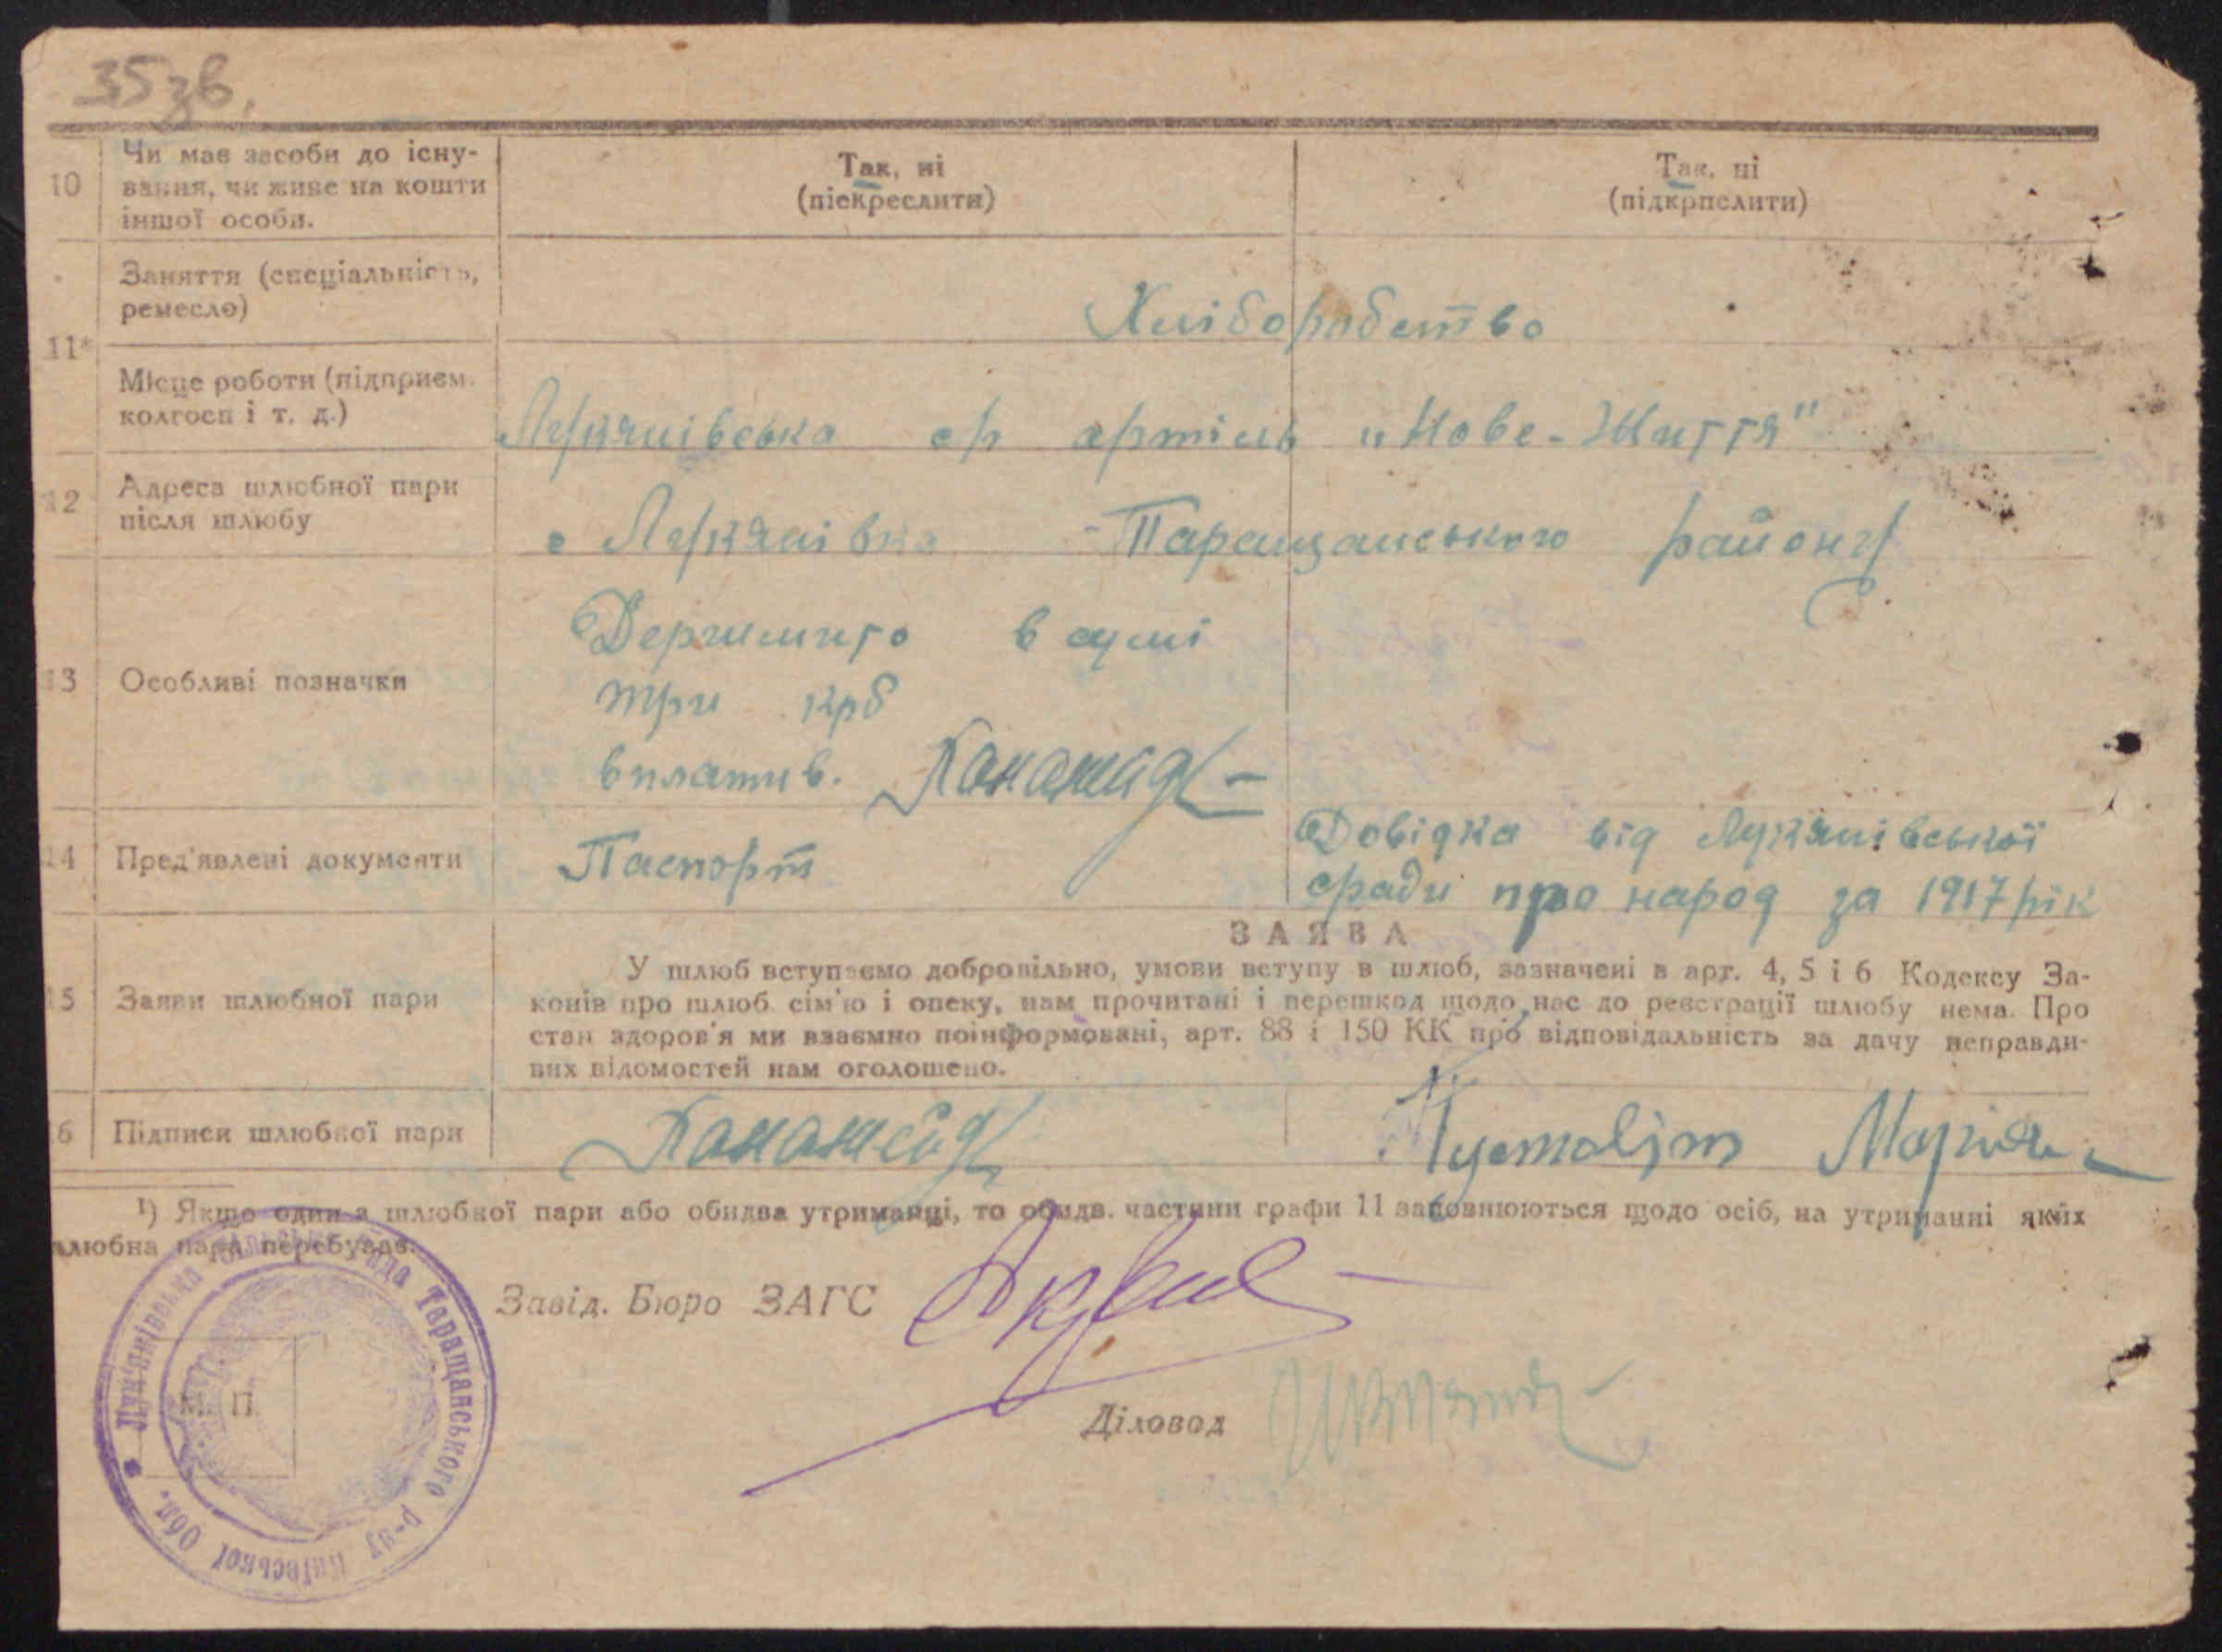 35 зв.
10
Чи має засоби до існу-
вання, чи живе на кошти
іншої особи.
Так, ні
(піскреслити)
Так, ні
(підкрпслити)
11*
Заняття (спеціальність,
ремесло)
Хліборобство
Місце роботи (підприєм.
колгосп і т. д.)
Лук'янівська с/р артіль „Нове-Життя"
12
Адреса шлюбної пари
після шлюбу
с Лук'янівка Таращанського району
13
Особливі позначки
Держмито в сумі
три крб
вплатив.
14
Пред'явлені документи
Паспорт
Довідка від Лук'янівської
с/ради про народ за 1917 рік
15
Заяви шлюбної пари
ЗАЯВА
У шлюб вступаємо добровільно, умови вступу в шлюб, зазначені в арт. 4, 5 і 6 Кодексу За-
конів про шлюб. сім'ю і опеку, нам прочитані і перешкод щодо нас до реєстрації шлюбу нема. Про
стан здоров'я ми взаємно поінформовані, арт. 88 і 150 КК про відповідальність за дачу неправди-
вих відомостей нам оголошено.
16
Підписи шлюбної пари
Марія
¹) Якщо один з шлюбної пари або обидва утриманці, то обидв. частини графи 11 заповнюються щодо осіб, на утриманні яких
шлюбна пара перебуває.
Завід. Бюро ЗАГС
Діловод
М. П.
Лук'янівська сільська Рада Таращанського Р-ну Київської Обл.